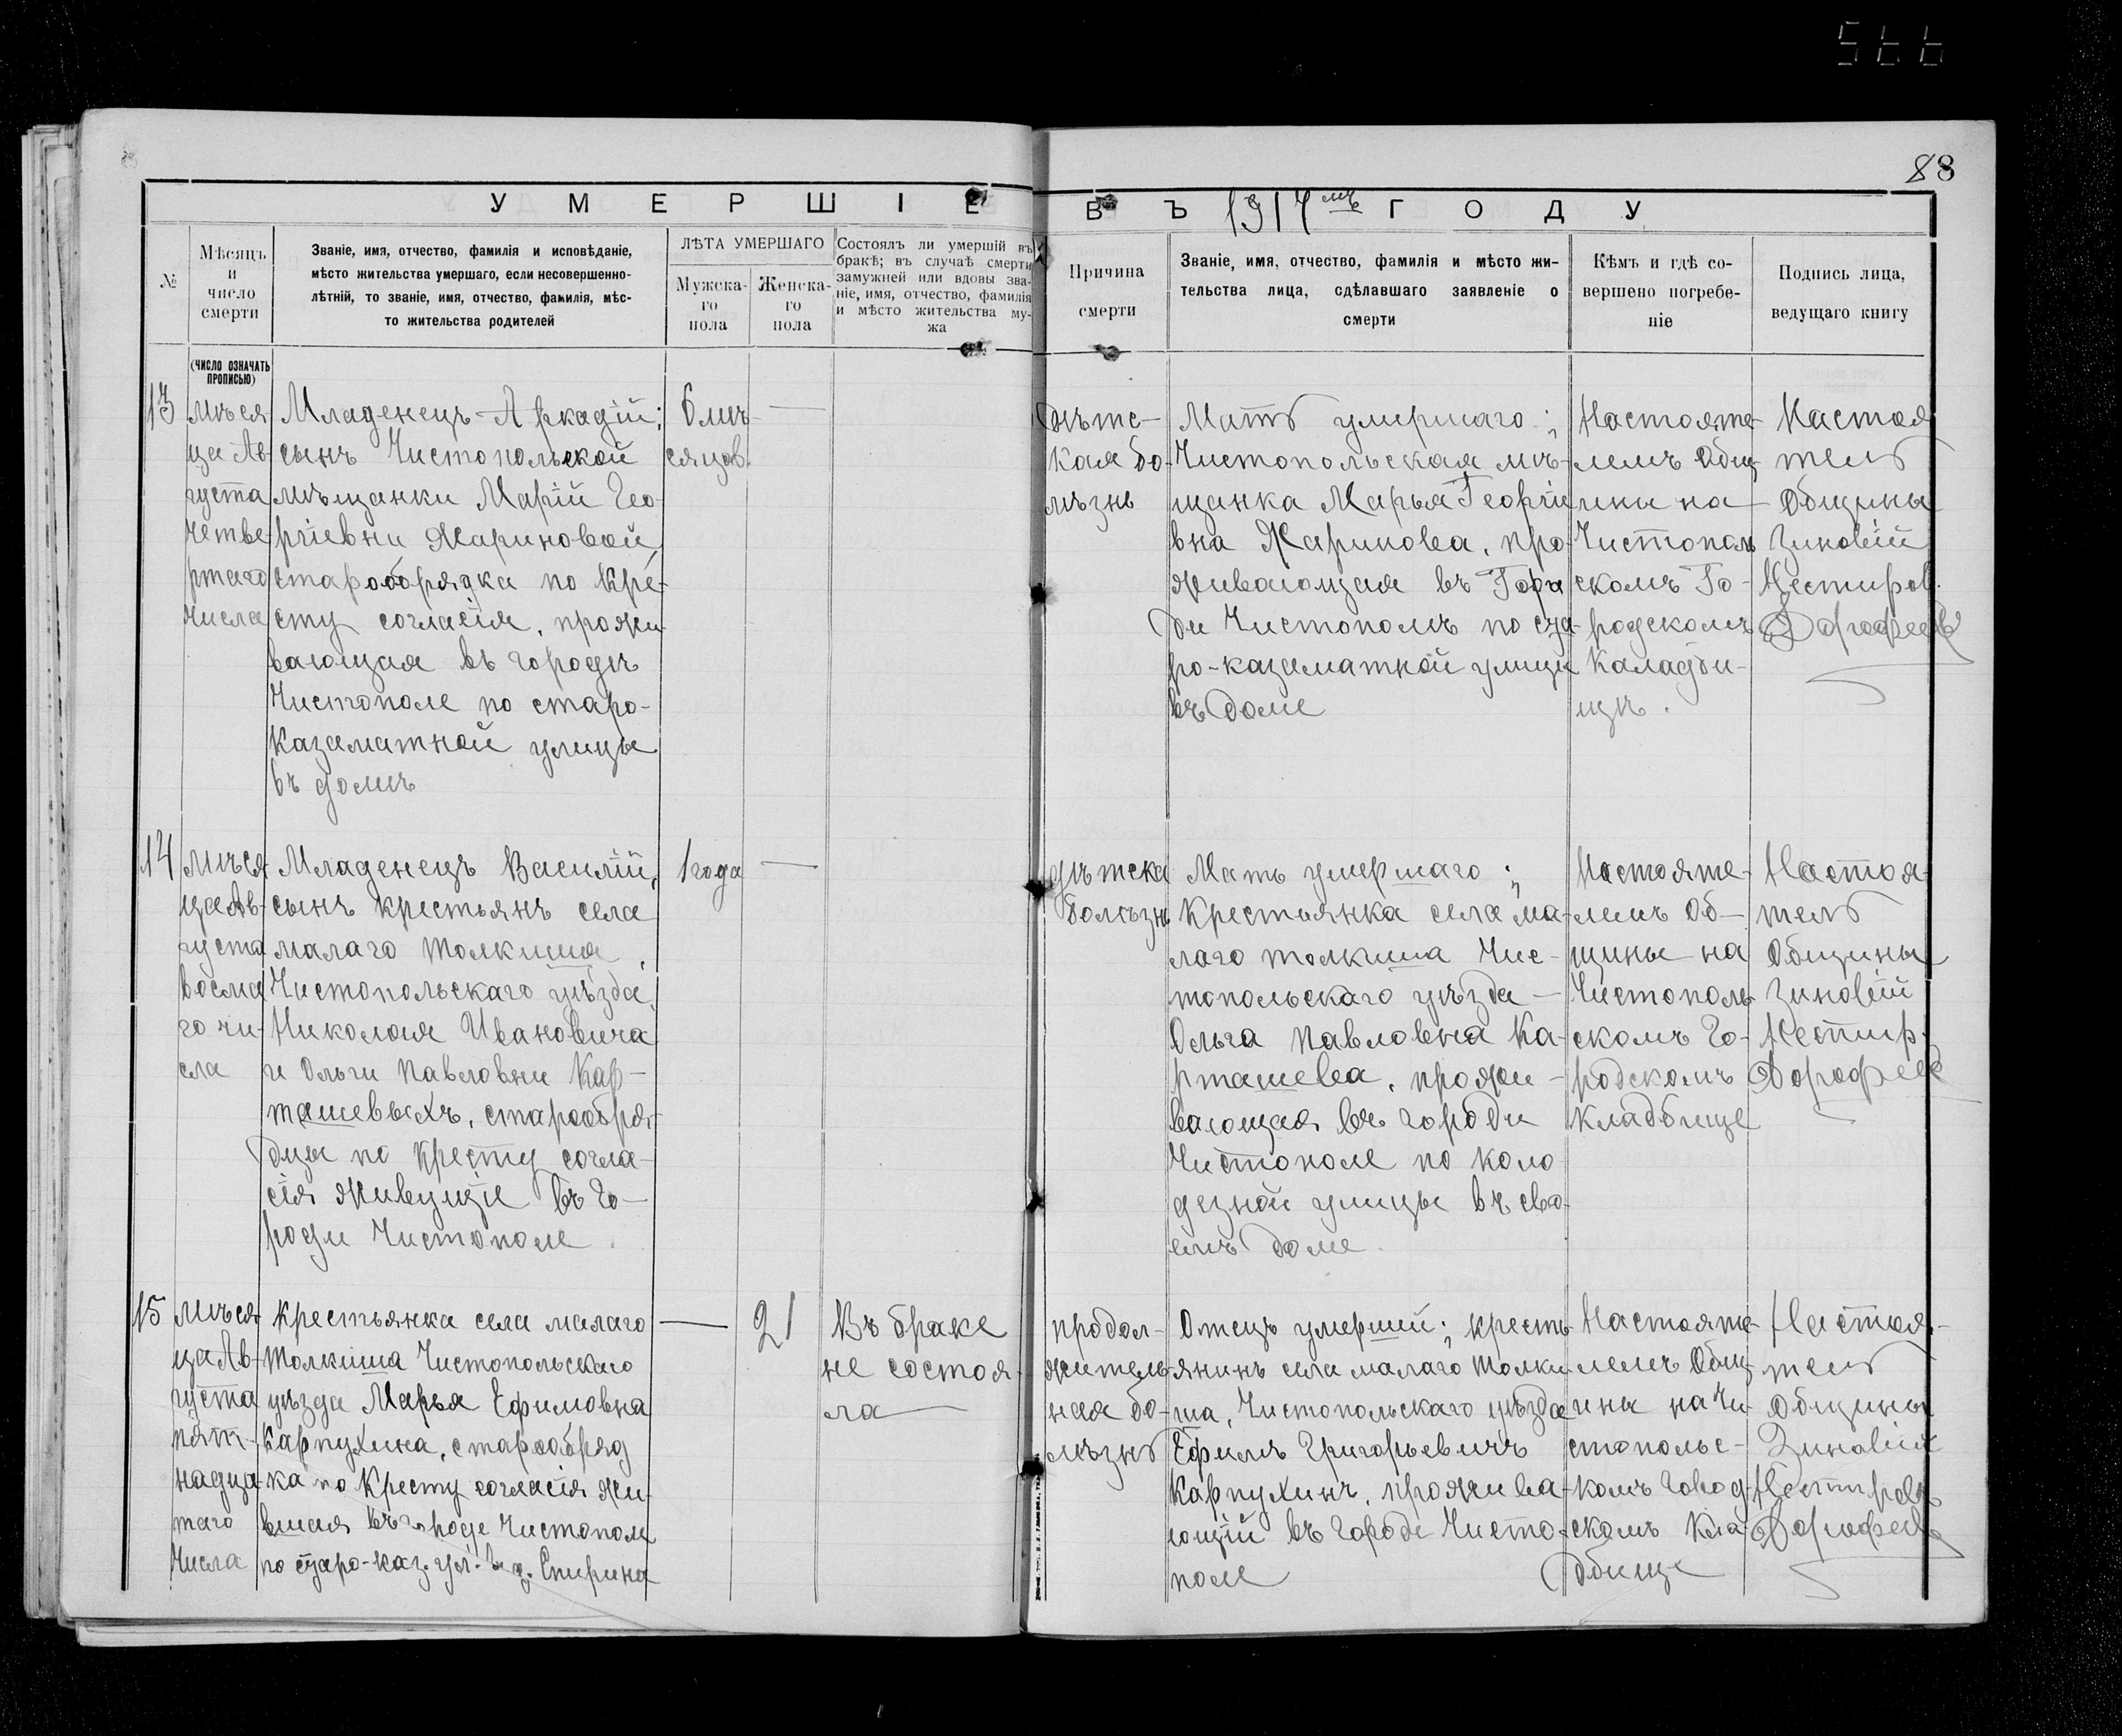 566
88
УМЕРШІЕ ВЪ 1917мъ ГОДУ
№
Мѣсяцъ
и
число
смерти
(ЧИСЛО ОЗНАЧАТЬ
ПРОПИСЬЮ)
Званіе, имя, отчество, фамилія и исповѣданіе,
мѣсто жительства умершаго, если несовершенно-
лѣтній, то званіе, имя, отчество, фамилія, мѣс-
то жительства родителей
ЛѢТА УМЕРШАГО
Мужска-
го
пола
Женска-
го
пола
Состоялъ ли умершій въ
бракѣ; въ случаѣ смерти
замужней или вдовы зва-
ніе, имя, отчество, фамилія
и мѣсто жительства му-
жа
Причина
смерти
Званіе, имя, отчество, фамилія и мѣсто жи-
тельства лица, сдѣлавшаго заявленіе о
смерти
Кѣмъ и гдѣ со-
вершено погребе-
ніе
Подпись лица,
ведущаго книгу
13
мѣся
ца Ав-
густа
четве
ртаго
числа
Младенецъ-Аркадій;
сынъ Чистопольской
мѣщанки Марій Гео-
ргіевни Жариновой,
старообрядка по Кре-
сту согласія, прожи-
вающая въ городѣ
Чистополе по старо-
Казаматной улицы
въ домѣ
6 мѣ-
сяцов.
—
дѣтс-
кая бо-
лѣзнь
Мать умершаго;
Чистопольская мѣ-
щанка Марья Георгіе
вна Жаринова, про-
живающая въ Горо
де Чистополѣ по ста-
ро-казаматной улицы
въ доме
Настояте-
лемъ Общ-
ины на
Чистополь
скомъ Го-
родскомъ
Каладби-
щѣ.
Настоя
тель
Общины
Зиновій
Нестиров.
Дорофеев
14
мѣся
ца Ав-
густа
восма
го чи-
сла
Младенецъ Василій,
сынъ крестьянъ села
малаго толкиша,
Чистопольскаго уѣзда,
Николая Ивановича
и Ольги Павловни Кар-
ташевыхъ, старообря-
дцы по Кресту согла-
сія живущіе въ Го-
роди Чистополе.
1 года
—
дѣтска
болѣзнь
Мать умершаго;
Крестьянка села ма-
лаго толкиша Чис-
топольскаго уѣзда —
Ольга Павловна Ка-
рташева, прожи-
вающая въ городи
Чистополе по коло
дезной улицы въ сво-
емъ доме.
Настояте-
лемъ Об-
щины на
Чистополь
скомъ Го-
родскомъ
Кладбище
Настоя-
тель
Общины
Зиновій
Нестир.
Дорофеев
15
мѣся
ца Ав-
густа
пят-
надца-
таго
числа
Крестьянка села малаго
толкиша Чистопольскаго
уѣзда Марья Ефимовна
Карпухина, старообряд
ка по Кресту согласія жи-
вшая въ городе Чистополе
по старо-каз. ул. в д. Спирина
—
21
Въ браке
не состоя-
ла
продол-
житель-
ная бо-
лѣзнь
Отецъ умершій; кресть
янинъ села малаго толки
ша, Чистопольскаго уѣзда
Ефимъ Григорьевичъ
Карпухинъ, прожива-
ющій въ городе Чисто-
поле
Настояте-
лемъ Общ-
ины на Чи-
стопольс-
комъ Город-
скомъ Кла-
дбище
Настоя-
тель
Общины
Зиновій
Нестиров.
Дорофеев